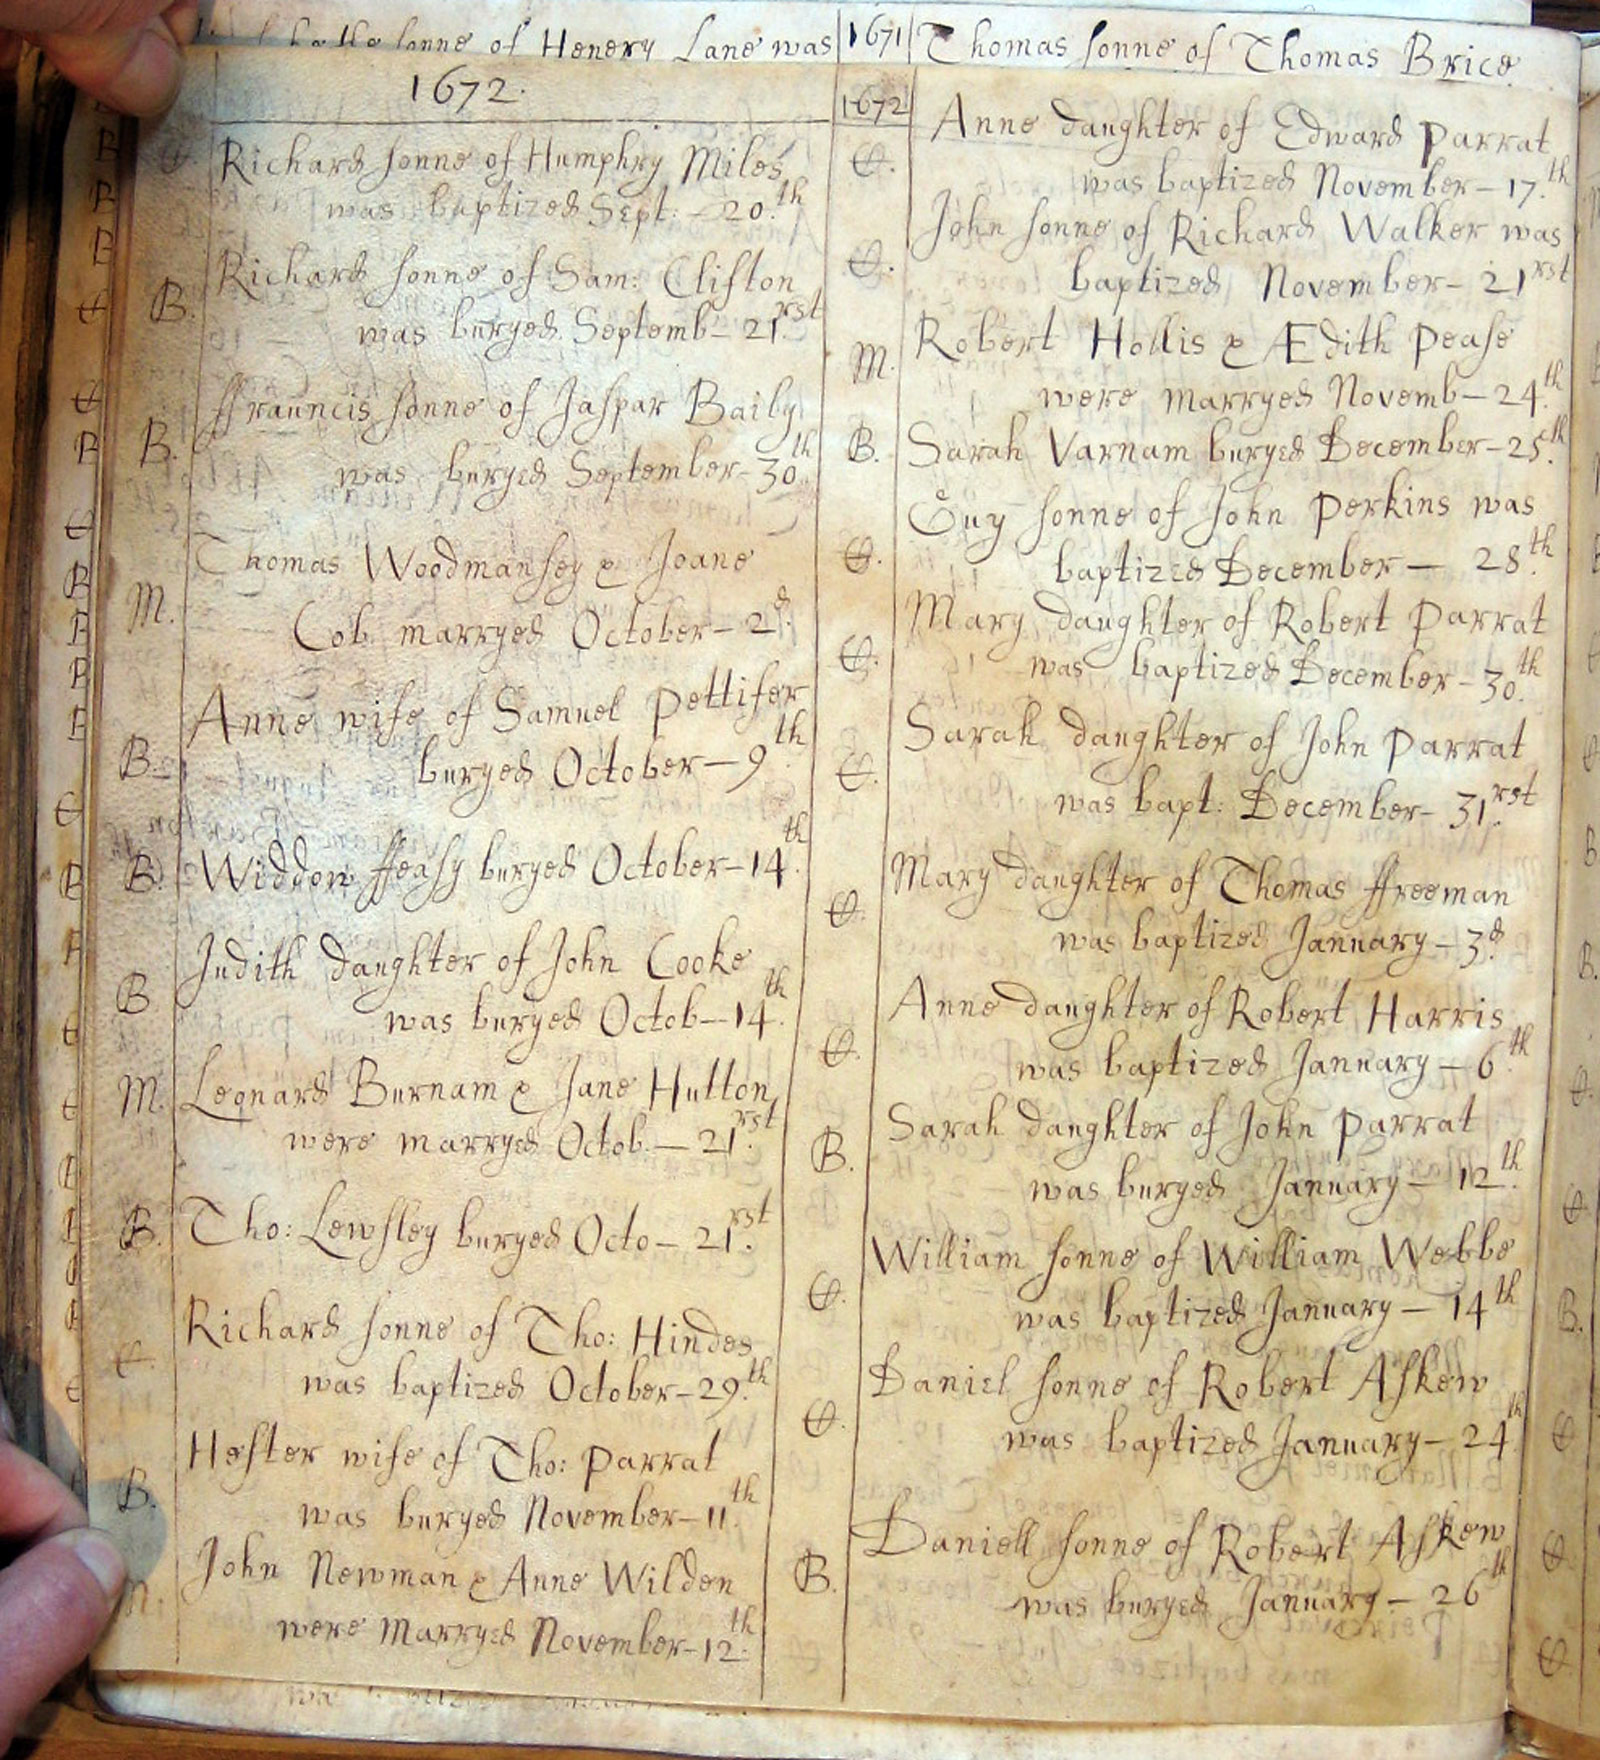 sonne of Henery Lane was
1671 Thomas sonne of Thomas Brice
1672.
C. Richard sonne of Humphry Miles
was baptized Sept: - 20.th
Richard sonne of Sam: Clifton
B. was buryed Septemb- 21.rst
ffrauncis sonne of Jaspar Baily
B. was buryed September- 30th
Thomas Woodmansey & Joane
M. Cob. marryed October- 2d.
Anne wife of Samuel Pettifer
B. buryed October- 9th.
B. Widdow ffeasy buryed October- 14.th
Judith daughter of John Cooke
B was buryed Octob- 14.th
M. Leonard Burnam & Jane Hutton
were marryed Octob.- 21.rst
B. Tho: Lewsley buryed Octo- 21.rst
Richard sonne of Tho: Hindes
C. was baptized October- 29.th
Hester wife of Tho: Parrat
B. was buryed November- 11.th
John Newman & Anne Wilden
M. were Marryed November- 12.th
1672 Anne daughter of Edward Parrat
C. was baptized November- 17.th
John sonne of Richard Walker was
C. baptized November- 21rst
Robert Hollis & Ædith Pease
M. were marryed Novemb- 24.th
B. Sarah Varnam buryed December- 25.th
Guy sonne of John Perkins was
C. baptized December- 28.th
Mary daughter of Robert Parrat
C. was baptized December- 30.th
Sarah daughter of John Parrat
C. was bapt: December- 31.rst
Mary daughter of Thomas ffreeman
C. was baptized January- 3.d
Anne daughter of Robert Harris
C. was baptized January- 6.th
Sarah daughter of John Parrat
B. was buryed January- 12.th
William sonne of William Webbe
C. was baptized January- 14th
Daniel sonne of Robert Askew
C. was baptized January- 24th
Daniell sonne of Robert Askew
B. was buryed January- 26th